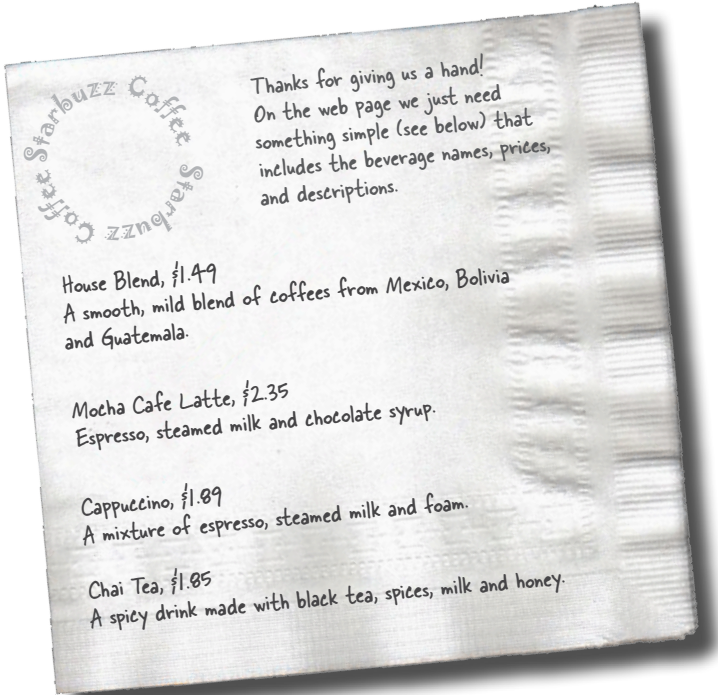 Starbuzz Coffee Starbuzz Coffee
Thanks for giving us a hand!
On the web page we just need
something simple (see below) that
includes the beverage names, prices,
and descriptions.
House Blend, $1.49
A smooth, mild blend of coffees from Mexico, Bolivia
and Guatemala.
Mocha Cafe Latte, $2.35
Espresso, steamed milk and chocolate syrup.
Cappuccino, $1.89
A mixture of espresso, steamed milk and foam.
Chai Tea, $1.85
A spicy drink made with black tea, spices, milk and honey.